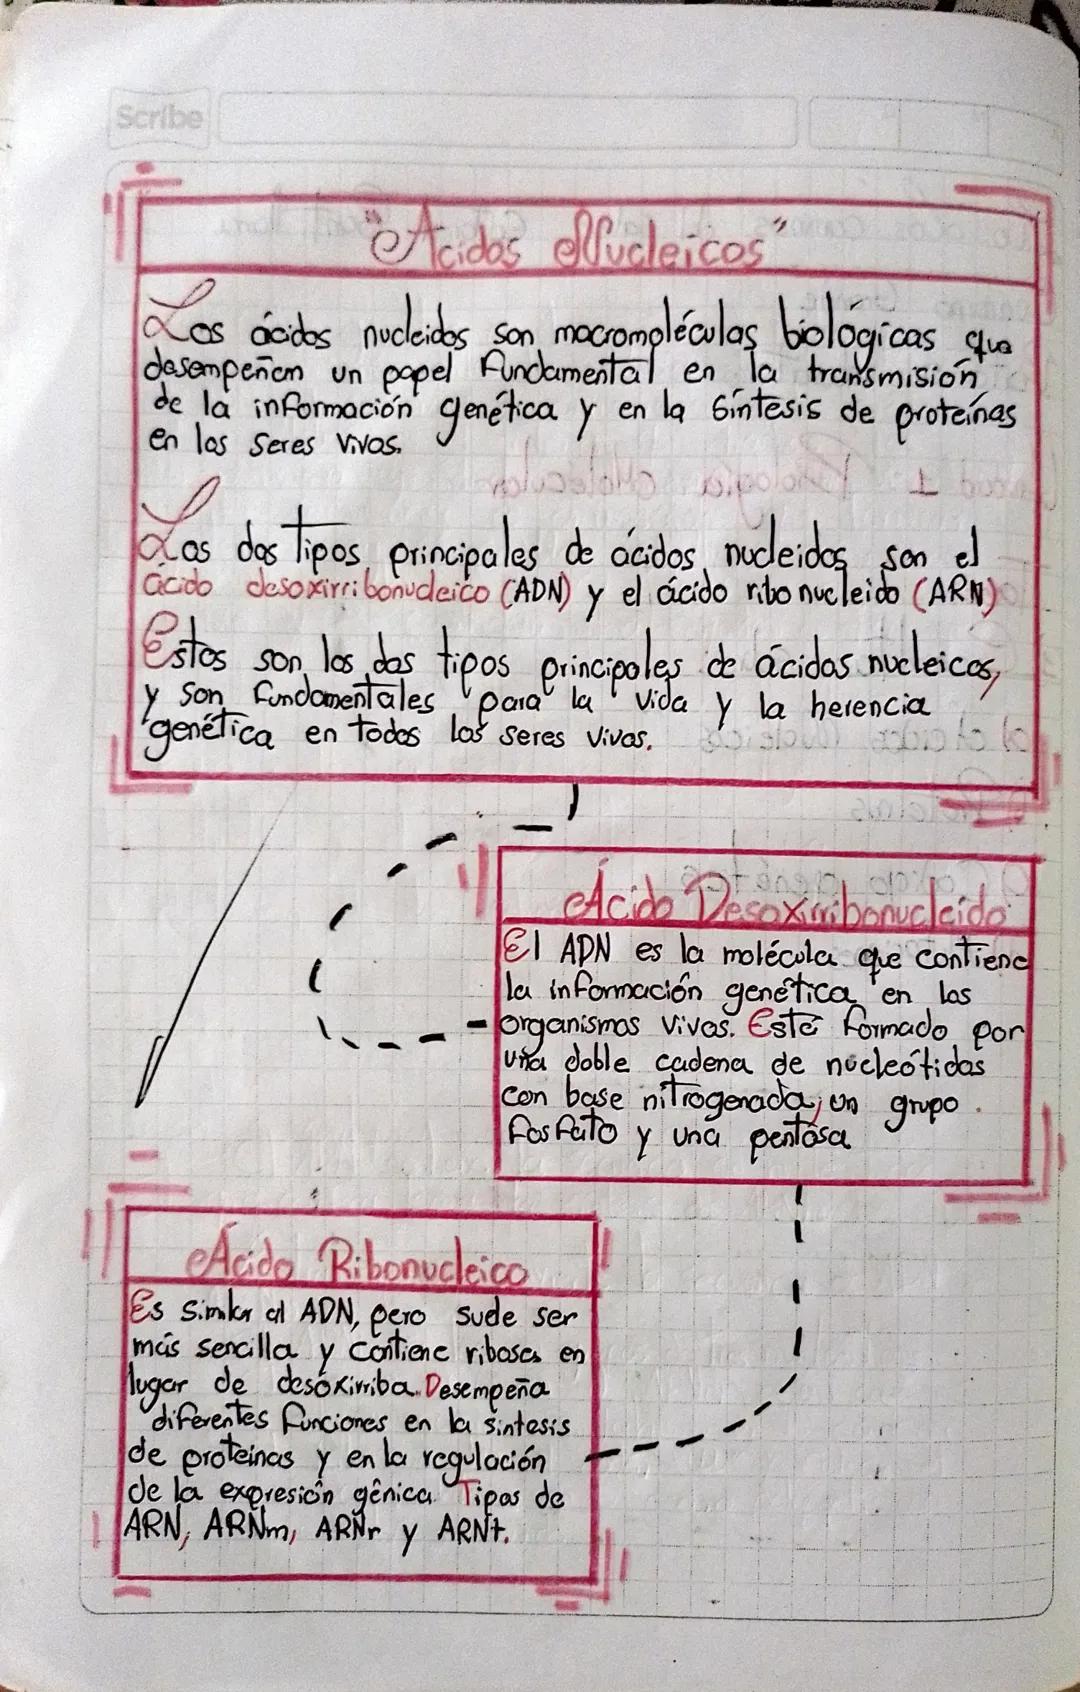 Scribe
"Acidos Nucleicos"
Los ácidos nucleidos son macromoléculas biológicas que
desempeñan un papel fundamental en la transmisión
de la información genética y en la síntesis de proteínas
en los seres vivos.
Los dos tipos principales de ácidos nucleidos son el
ácido desoxirribonucleico (ADN) y el ácido ribonucleido (ARN)
Estos son los dos tipos principales de ácidos nucleicos,
y son fundamentales para la vida y la herencia
genética en todos los seres vivos.
Ácido Desoxirribonucleido
El ADN es la molécula que contiene
la información genética en los
organismos vivos. Esté formado por
una doble cadena de nucleótidos
con base nitrogenada, un grupo
fosfato y una pentosa
Ácido Ribonucleico
Es similar al ADN, pero suele ser
más sencilla y contiene ribosa en
lugar de desoxirriba. Desempeña
diferentes funciones en la sintesis
de proteinas y en la regulación
de la expresión génica. Tipos de
ARN, ARNm, ARNr y ARNt.